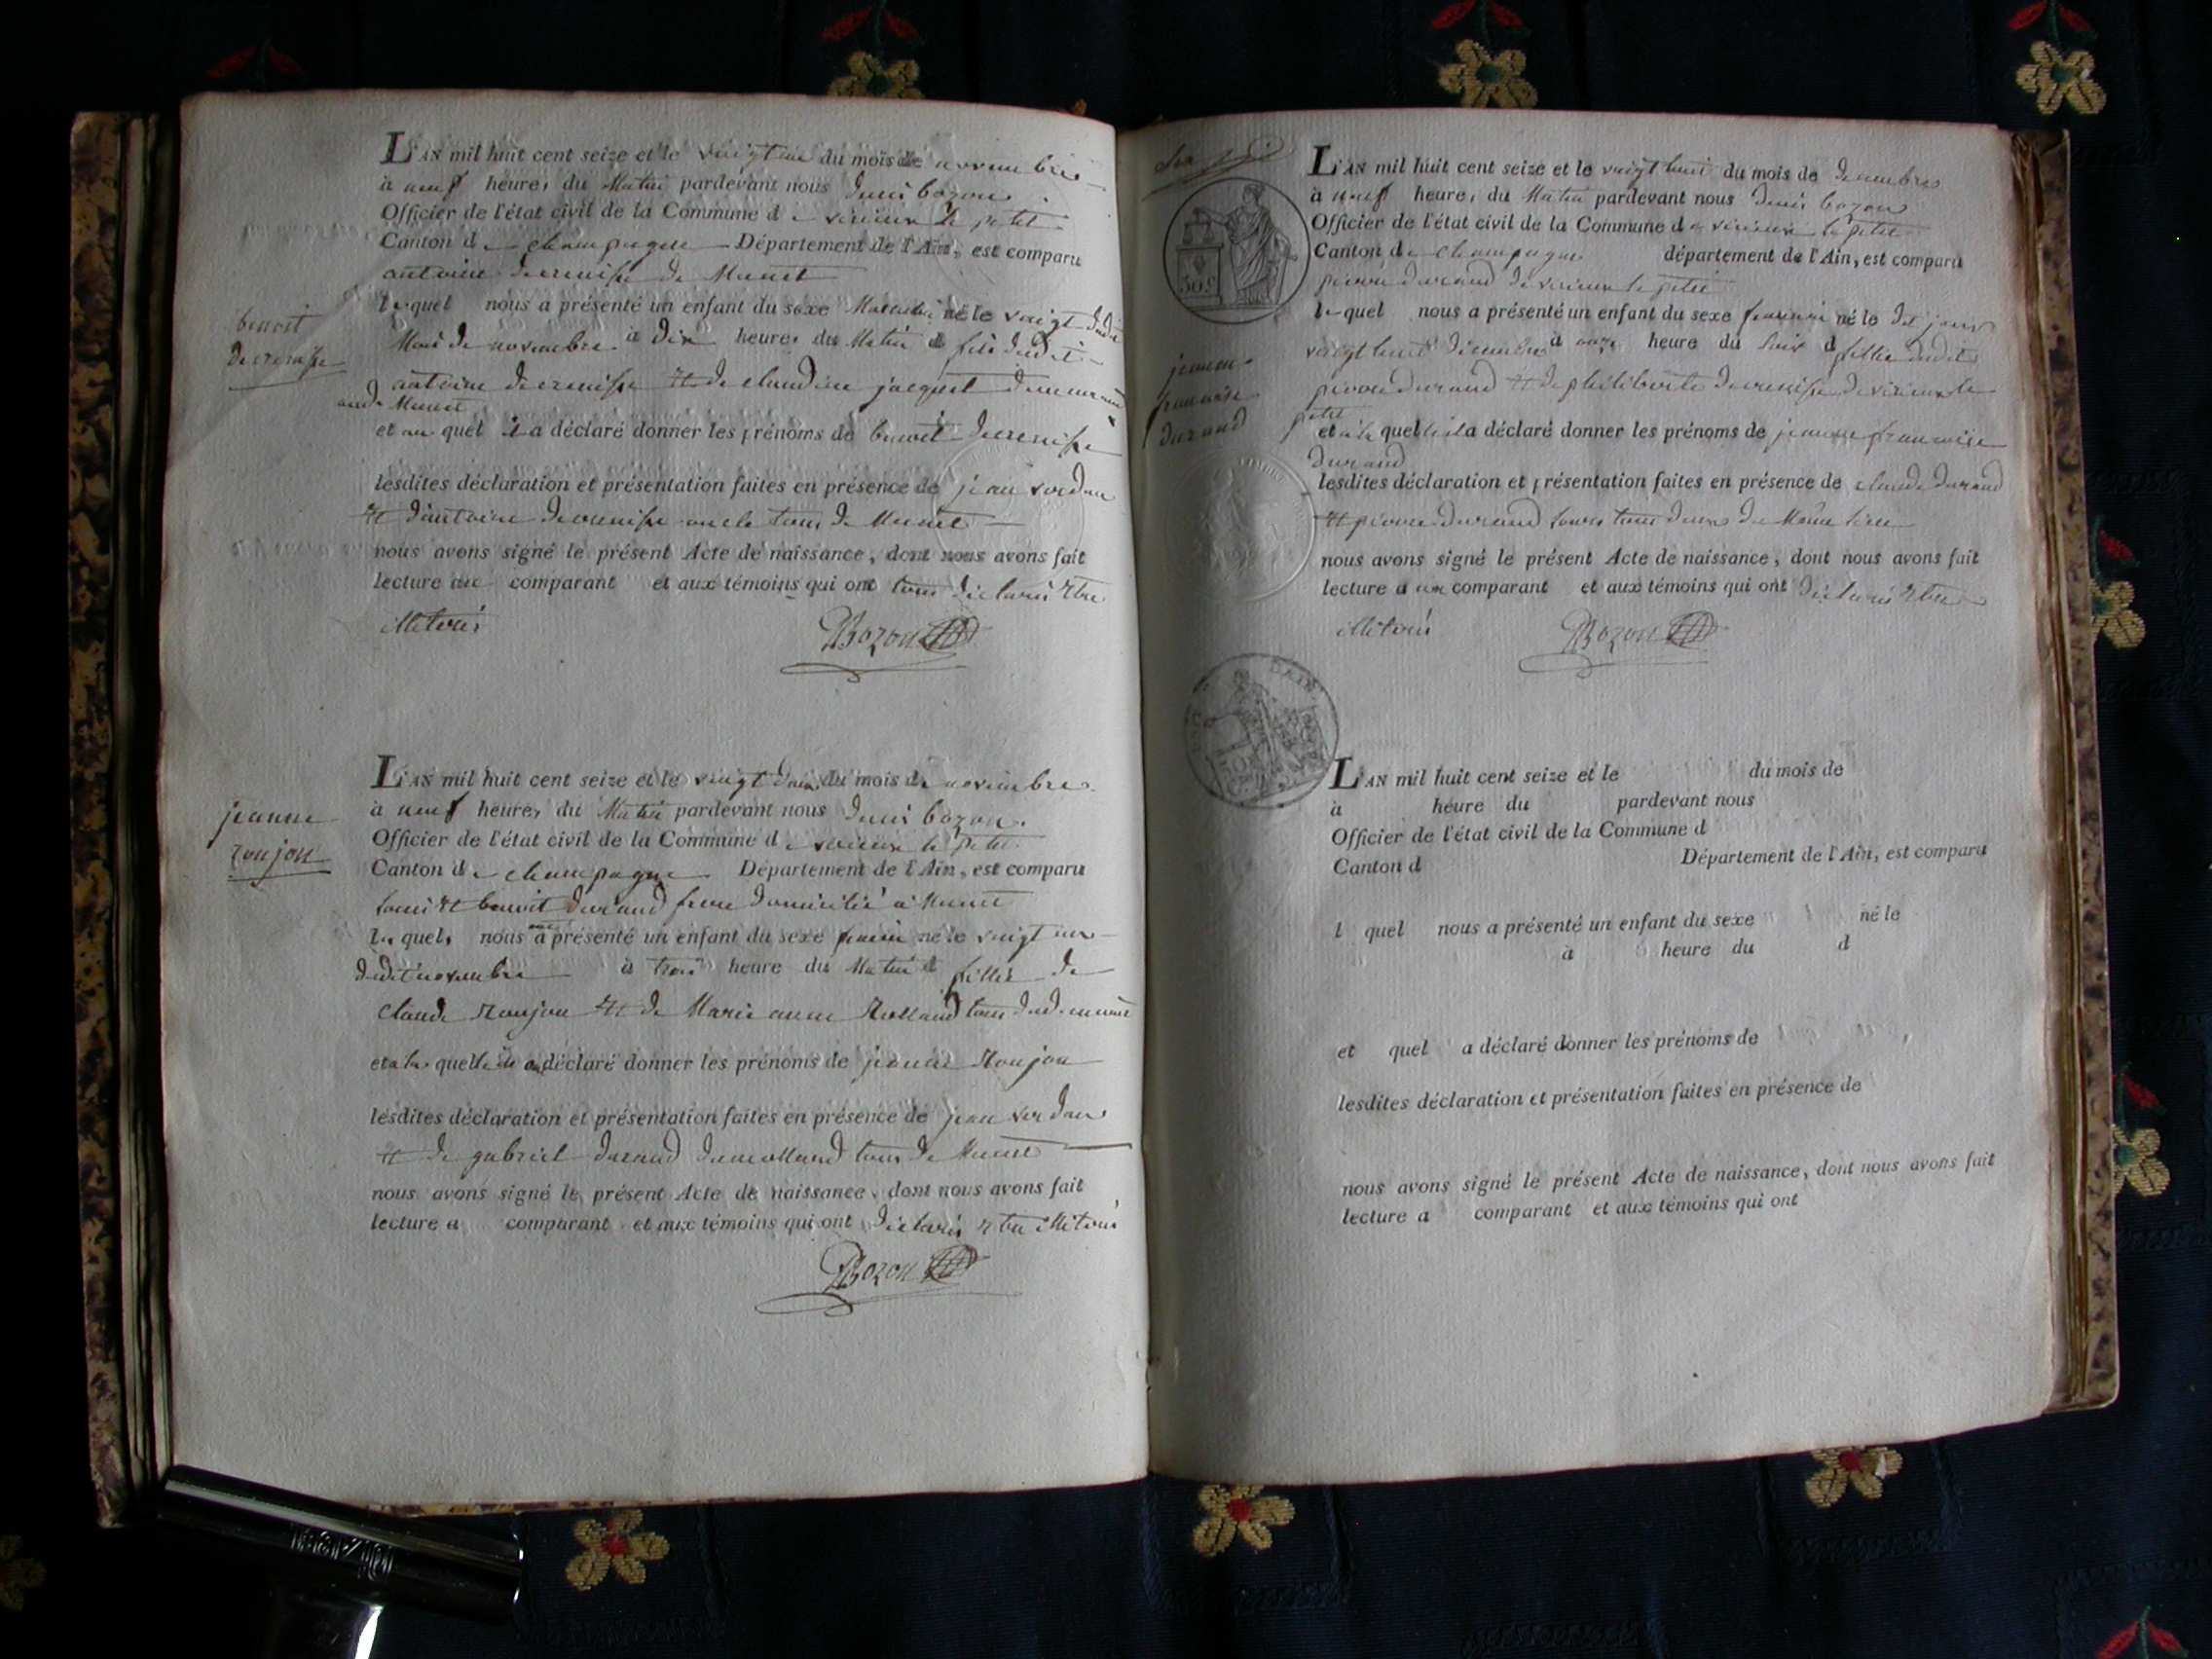 L'AN mil huit cent seize et le vingt un du mois de novembre
à neuf heures du Matin pardevant nous denis bozon
Officier de l'état civil de la Commune de virieux le petit
Canton de champagne Département de l'Ain, est comparu
antoine decrenisse de Munet
lequel nous a présenté un enfant du sexe Masculin né le vingt dudit
benoit
decrenisse
Mois de novembre à dix heures du Matin fils dudit
antoine decrenisse et de claudine jacquet
Munet
et au quel il a déclaré donner les prénoms de benoit decrenisse
lesdites déclaration et présentation faites en présence de jean
et d'antoine decrenisse oncle tous de Munet
nous avons signé le présent Acte de naissance, dont nous avons fait
lecture au comparant et aux témoins qui ont tous déclarés être
illiterés
DBozon
L'AN mil huit cent seize et le vingt deux du mois de novembre
à neuf heures du Matin pardevant nous denis bozon
jeanne
roujon
Officier de l'état civil de la Commune de virieux le petit
Canton de champagne Département de l'Ain, est comparu
louis et benoit durand frere domiciliés à Munet
lesquels nous ont présenté un enfant du sexe feminin né le vingt un
dudit novembre à trois heure du Matin fille de
Claude roujon et de Marie anne rolland tous dud. munet
et a la quelle ils ont déclaré donner les prénoms de jeanne roujon
lesdites déclaration et présentation faites en présence de jean
et de gabriel durand tous de Munet
nous avons signé le présent Acte de naissance, dont nous avons fait
lecture a comparant et aux témoins qui ont déclarés etre illiterés
DBozon
L'AN mil huit cent seize et le vingt huit du mois de decembre
à neuf heures du Matin pardevant nous denis bozon
30.C
Officier de l'état civil de la Commune de virieux le petit
Canton de champagne département de l'Ain, est comparu
pierre durand de virieux le petit
lequel nous a présenté un enfant du sexe feminin né le dit jour
jeanne
francoise
durand
vingt huit decembre à onze heure du soir fille dudit
pierre durand et de philiberte decrenisse de virieux le
petit
et a la quelle il a déclaré donner les prénoms de jeanne francoise
durand
lesdites déclaration et présentation faites en présence de claude durand
et pierre durand tous deux du Même lieu
nous avons signé le présent Acte de naissance, dont nous avons fait
lecture a au comparant et aux témoins qui ont déclarés etre
illiterés
DBozon
L'AN mil huit cent seize et le du mois de
à heure du pardevant nous
Officier de l'état civil de la Commune d
Canton d Département de l'Ain, est comparu
l quel nous a présenté un enfant du sexe né le
à heure du d
et quel a déclaré donner les prénoms de
lesdites déclaration et présentation faites en présence de
nous avons signé le présent Acte de naissance, dont nous avons fait
lecture a comparant et aux témoins qui ont